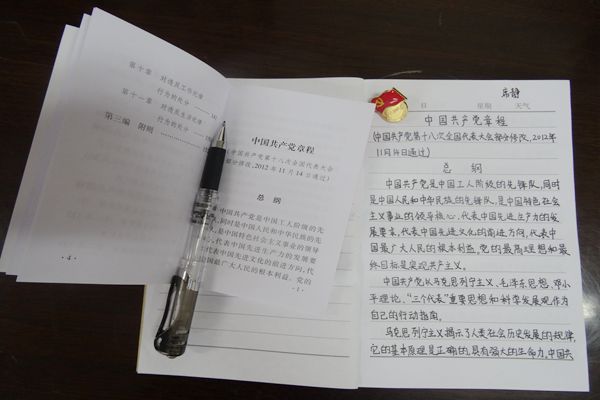 第十章 对违反工作纪律
行为的处分
第十一章 对违反生活纪律
行为的处分
第三编 附则
·4·
中国共产党章程
(中国共产党第十八次全国代表大会
部分修改,2012年11月14日通过)
总 纲
中国共产党是中国工人阶级的先
队,同时是中国人民和中华民族的先
是中国特色社会主义事业的领导
代表中国先进生产力的发展要
代表中国先进文化的前进方向,代
国最广大人民的根本利益。党的
·1·
席静
日 星期 天气
中国共产党章程
(中国共产党第十八次全国代表大会部分修改,2012年
11月14日通过)
总 纲
中国共产党是中国工人阶级的先锋队,同时
是中国人民和中华民族的先锋队,是中国特色社会
主义事业的领导核心,代表中国先进生产力的发
展要求,代表中国先进文化的前进方向,代表中
国最广大人民的根本利益。党的最高理想和最
终目标是实现共产主义。
中国共产党以马克思列宁主义、毛泽东思想、邓小
平理论、“三个代表”重要思想和科学发展观作为
自己的行动指南。
马克思列宁主义揭示了人类社会历史发展的规律,
它的基本原理是正确的,具有强大的生命力。中国共